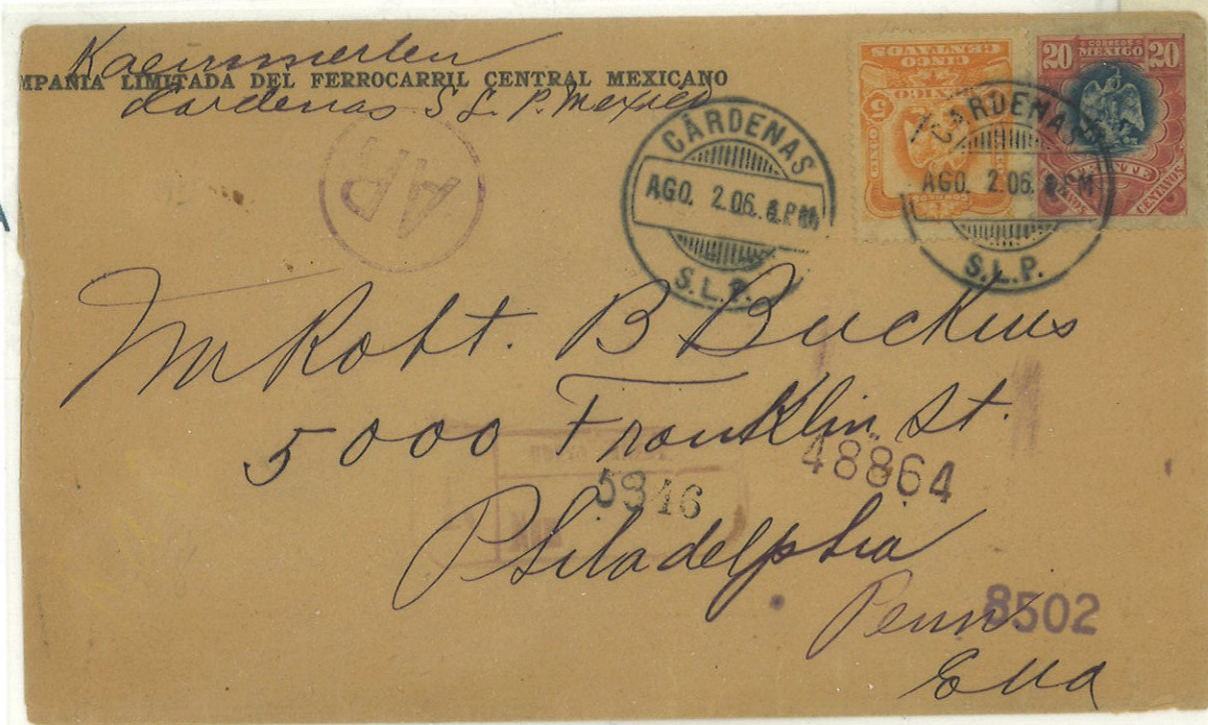 Kaemmerlen
MPAÑIA LIMITADA DEL FERROCARRIL CENTRAL MEXICANO
Cardenas S L. P. Mexico
AR
CÁRDENAS
AGO. 2.06. PM
S.L.P.
CENTAVOS
CINCO
MEXICO
5
CINCO
CORREOS
20 CORREOS 20
MEXICO
CENTAVOS
CÁRDENAS
AGO. 2.06. PM
S.L.P.
Mr Robt. B Buckius
5000 Franklin St.
48864
5346
Philadelphia
Penn.
8502
EUA